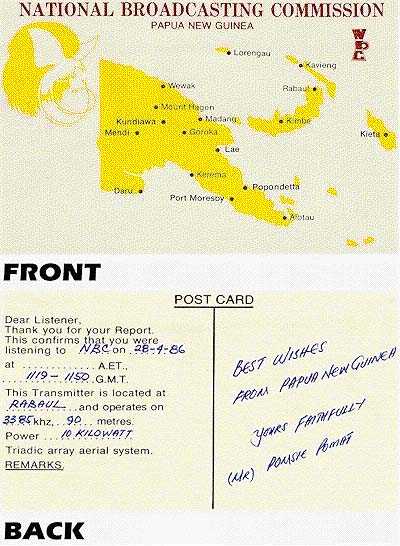 NATIONAL BROADCASTING COMMISSION
PAPUA NEW GUINEA
NBC
Lorengau
Kavieng
Wewak
Rabaul
Mount Hagen
Kundiawa
Madang
Kimbe
Mendi
Goroka
Kieta
Lae
Kerema
Daru
Popondetta
Port Moresby
Alotau
FRONT
POST CARD
Dear Listener,
Thank you for your Report.
This confirms that you were
listening to NBC on 28-4-86
at .............. A.E.T.,
1119 - 1150 G.M.T.
This Transmitter is located at
RABAUL and operates on
3385 khz, 90 metres.
Power ... 10 KILOWATT
Triadic array aerial system.
REMARKS
BEST WISHES
FROM PAPUA NEW GUINEA
YOURS FAITHFULLY
(MR) PONSIE POMAT
BACK